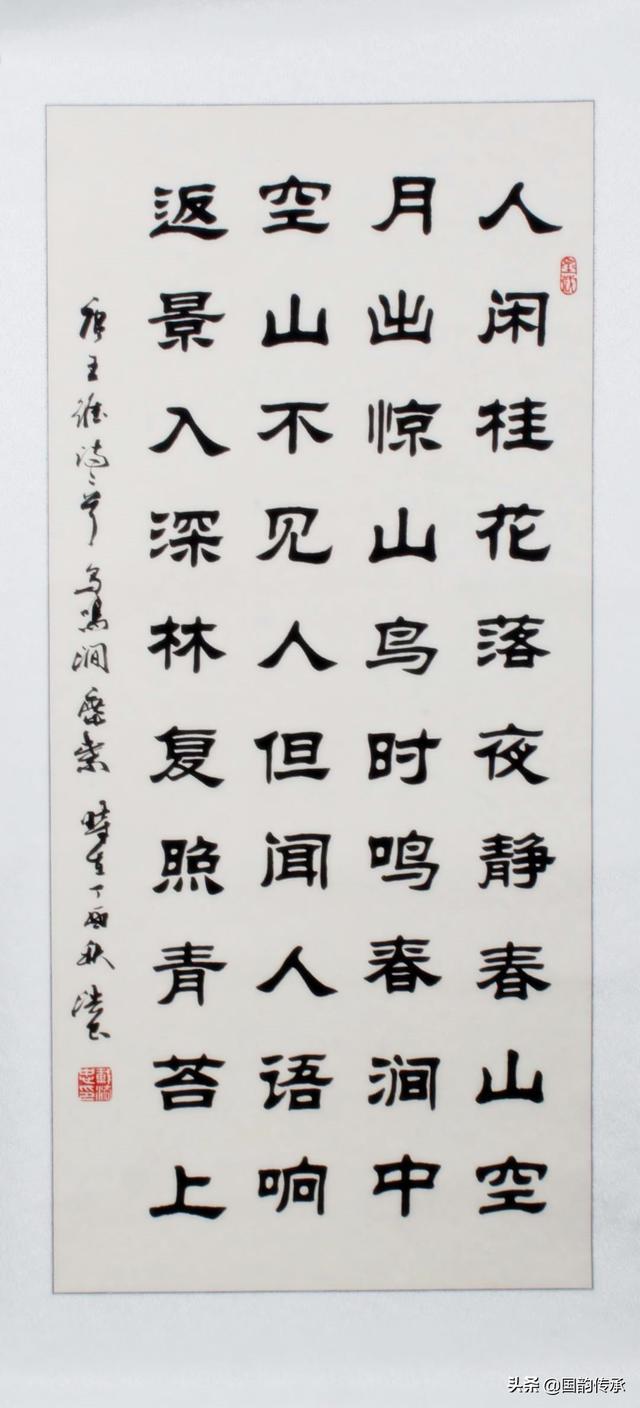 人闲桂花落夜静春山空
月出惊山鸟时鸣春涧中
空山不见人但闻人语响
返景入深林复照青苔上
唐王维诗二首鸟鸣涧鹿柴 時在丁酉秋
头条 @国韵传承